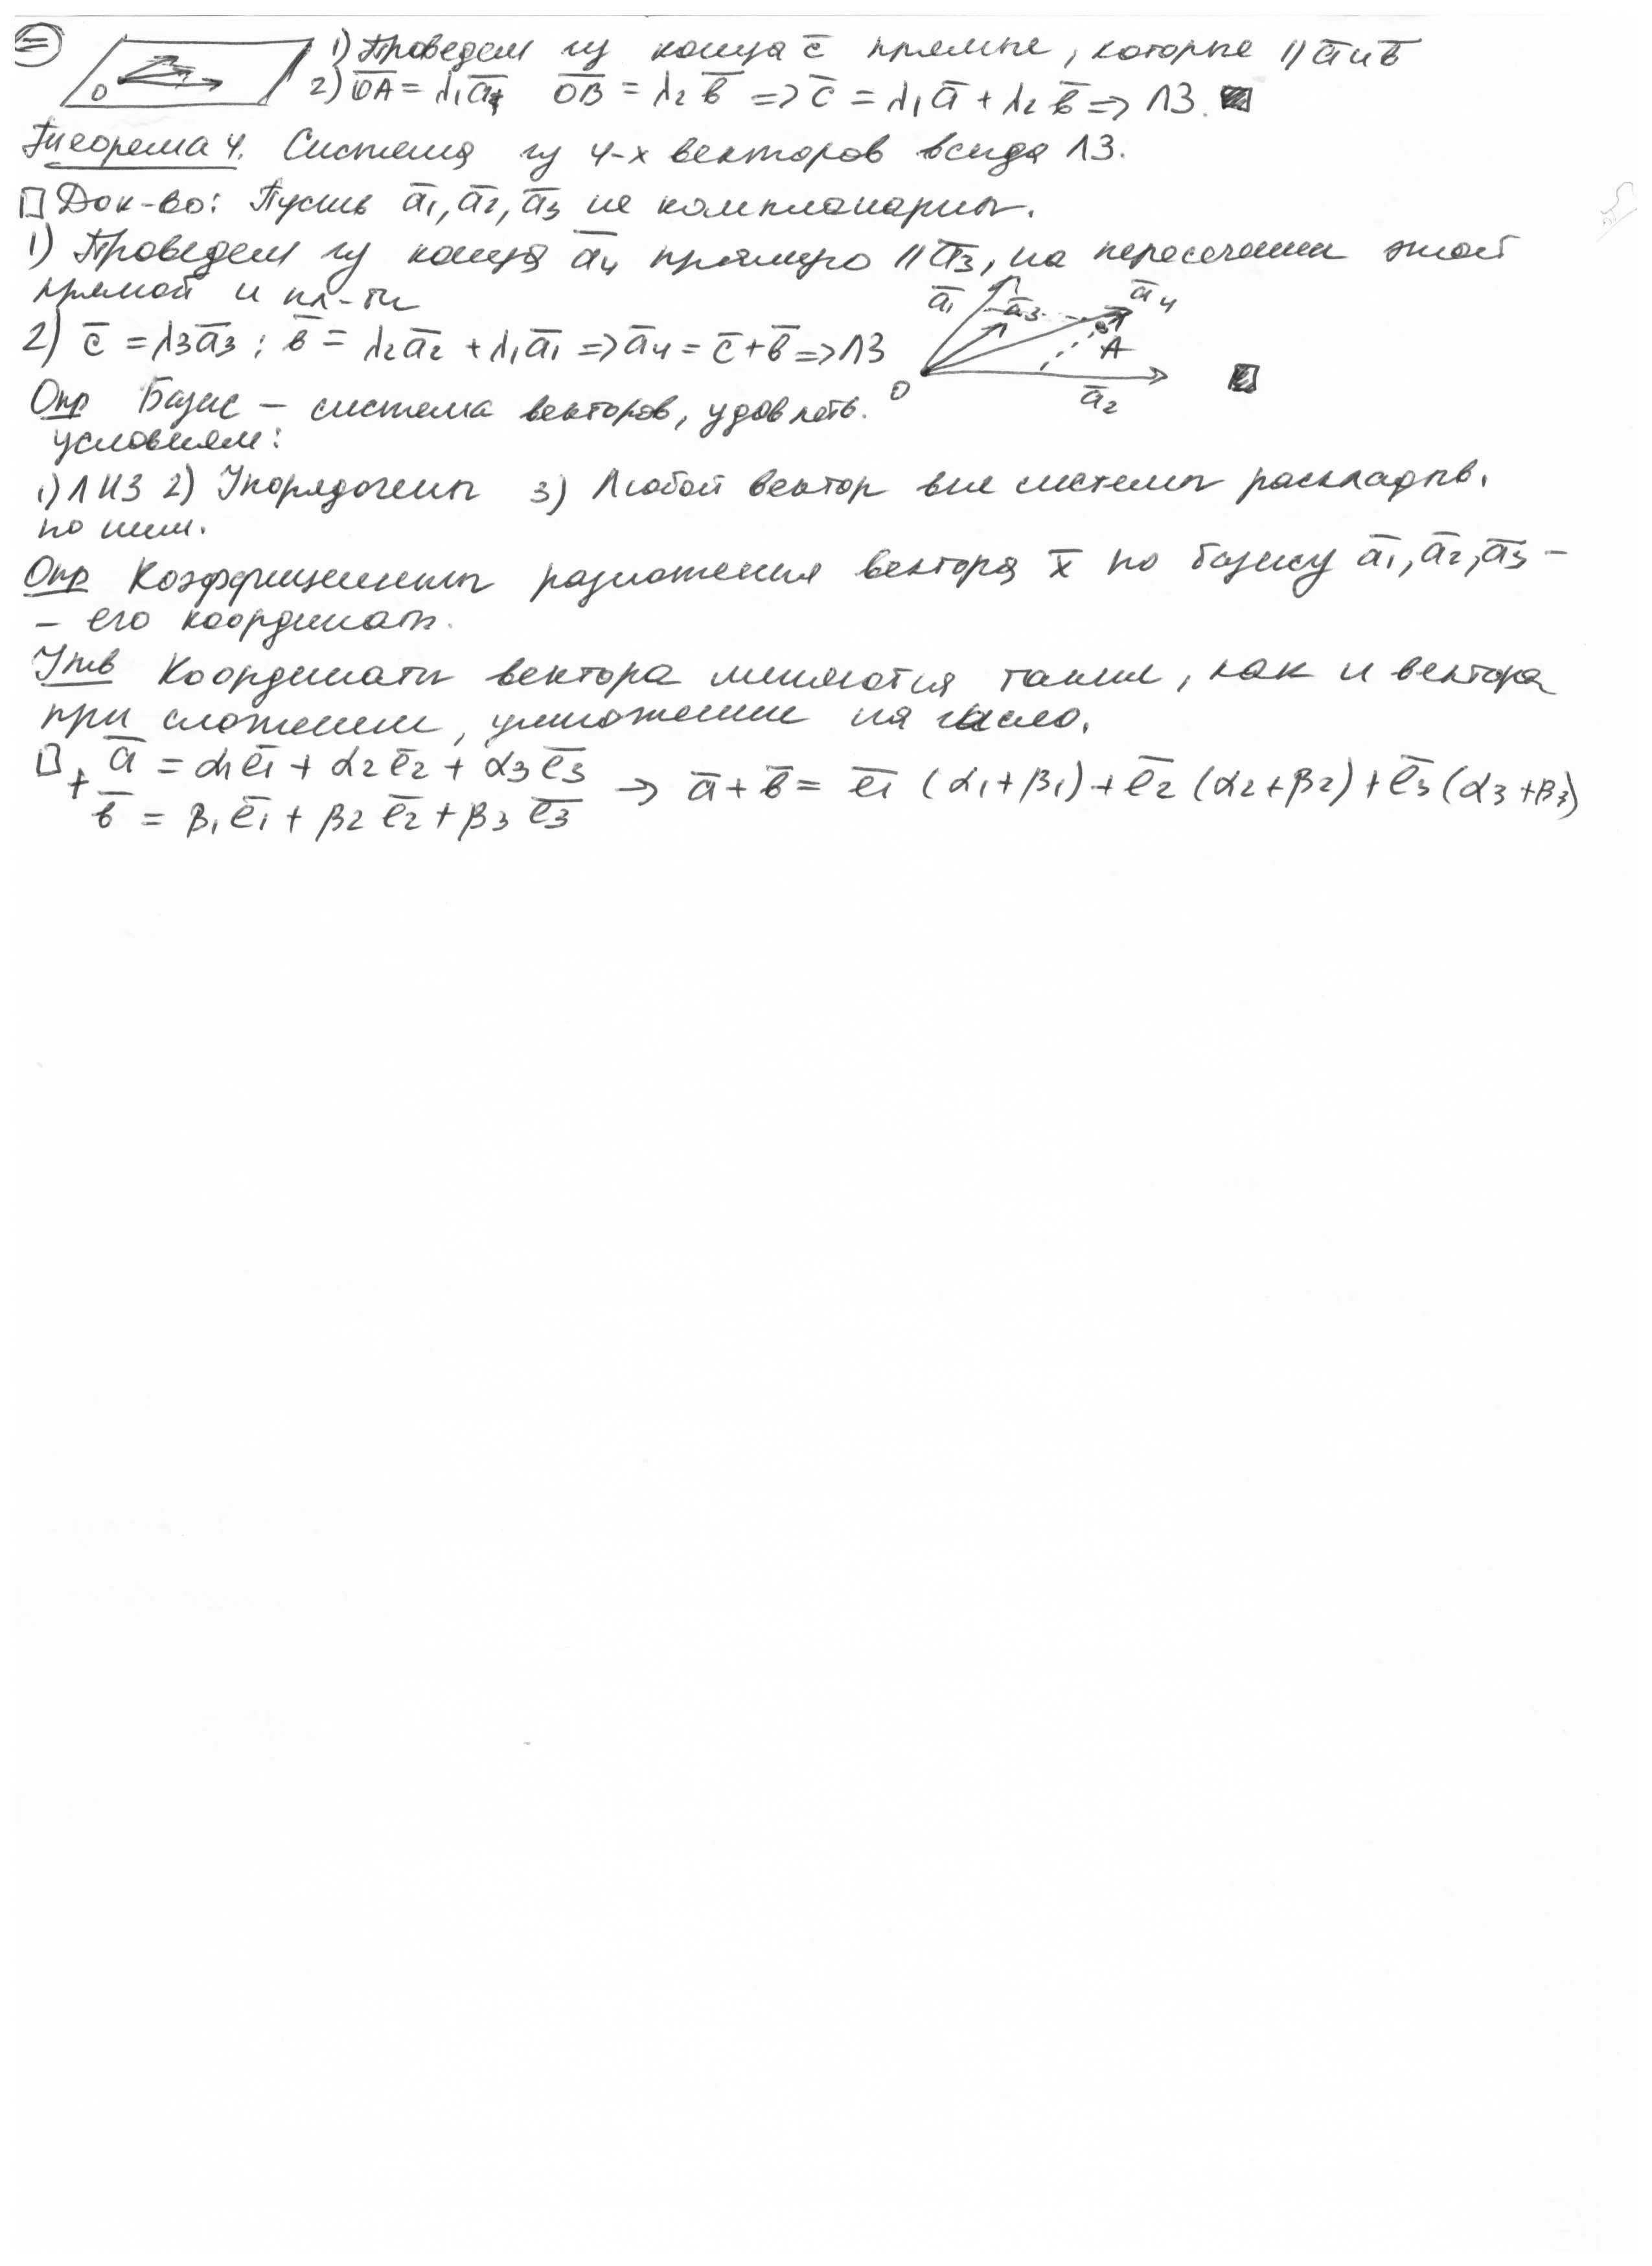 1) Проведем из конца c̅ прямые, которые || a̅ и b̅
2) O̅A̅ = λ₁a̅, O̅B̅ = λ₂b̅ => c̅ = λ₁a̅ + λ₂b̅ => ЛЗ. ■
O
Теорема 4. Система из 4-х векторов всегда ЛЗ.
□ Док-во: Пусть a̅₁, a̅₂, a̅₃ не компланарны.
1) Проведем из конца a̅₄ прямую || a̅₃, на пересечении этой
прямой и пл-ти
2) c̅ = λ₃a̅₃; b̅ = λ₂a̅₂ + λ₁a̅₁ => a̅₄ = c̅ + b̅ => ЛЗ
a̅₁ a̅₃ a̅₄ A O a̅₂ ■
Опр Базис – система векторов, удовлетв.
условиям:
1) ЛНЗ 2) Упорядочены 3) Любой вектор вне системы раскладыв.
по ним.
Опр Коэффициенты разложения вектора x̅ по базису a̅₁, a̅₂, a̅₃ –
– его координаты.
Утв Координаты вектора меняются также, как и вектора
при сложении, умножении на число.
□ + a̅ = α₁e̅₁ + α₂e̅₂ + α₃e̅₃
b̅ = β₁e̅₁ + β₂e̅₂ + β₃e̅₃ → a̅ + b̅ = e̅₁(α₁+β₁) + e̅₂(α₂+β₂) + e̅₃(α₃+β₃)